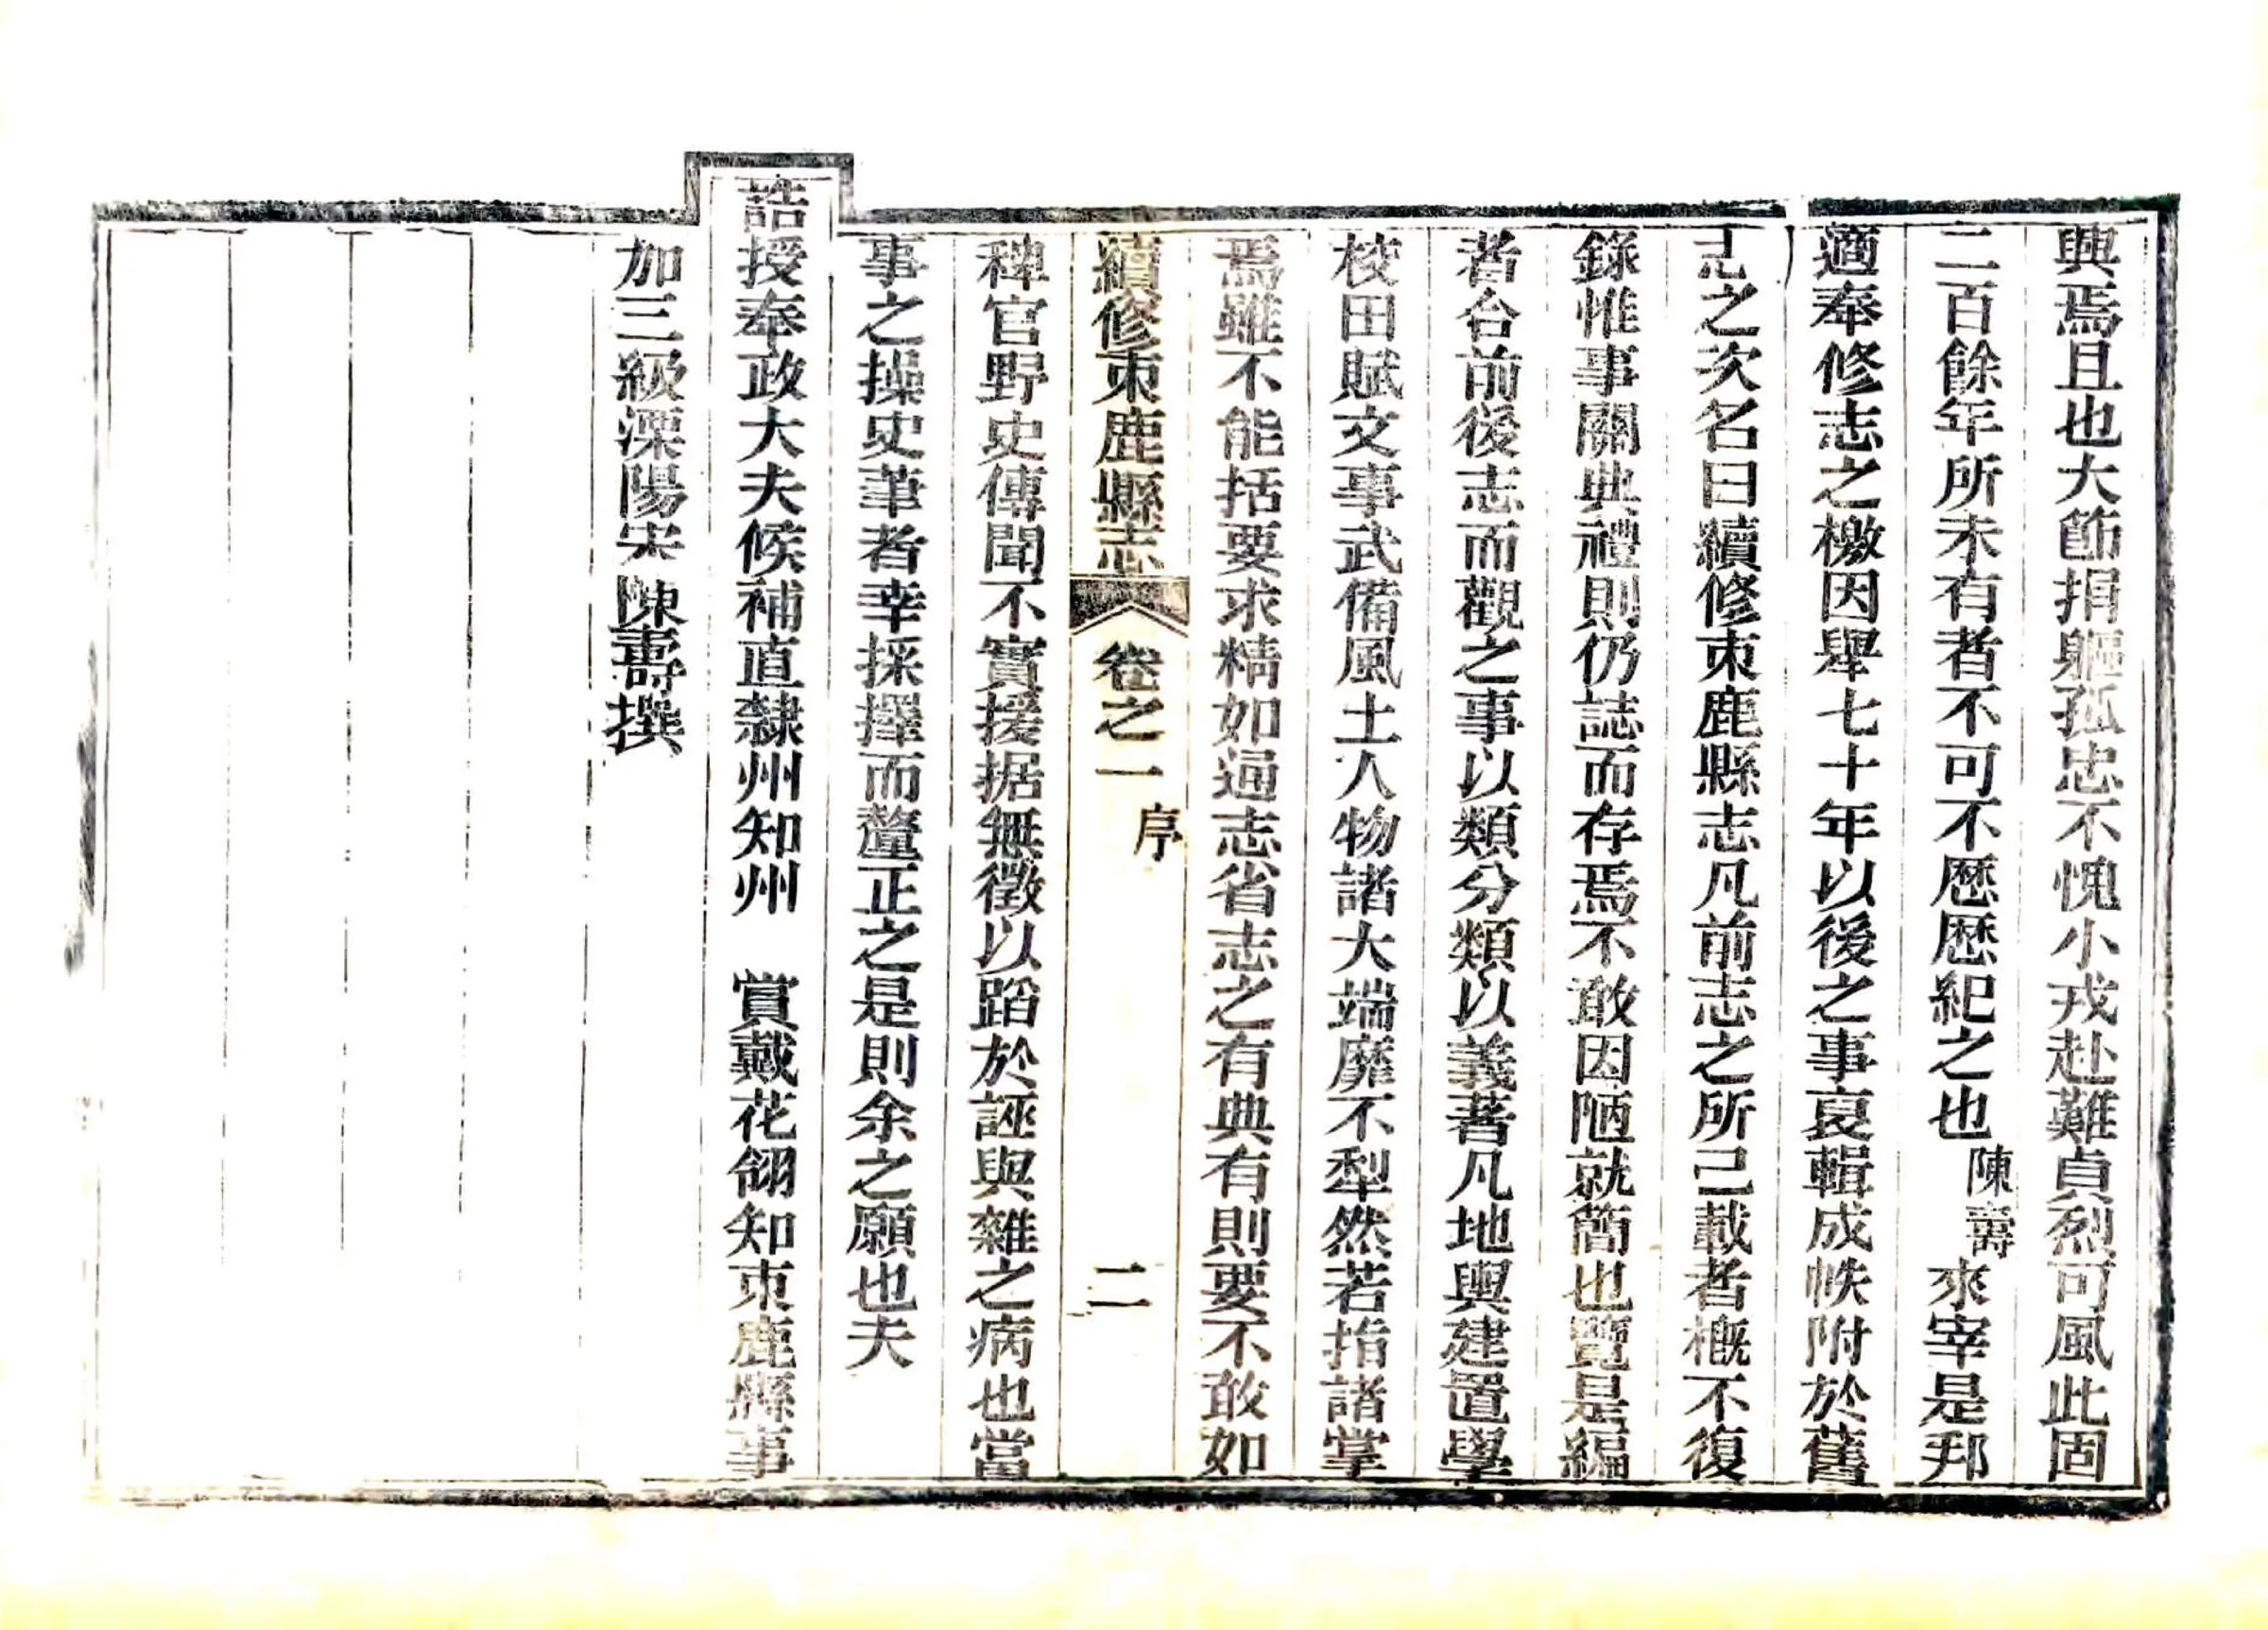 興焉且也大節捐軀孤忠不愧小戎赴難貞烈可風此固
二百餘年所未有者不可不歷歷紀之也陳壽來宰是邦
適奉修志之檄因舉七十年以後之事裒輯成帙附於舊
志之次名曰續修束鹿縣志凡前志之所己載者槪不復
錄惟事關典禮則仍誌而存焉不敢因陋就簡也覽是編
者合前後志而觀之事以類分類以義著凡地輿建置學
校田賦文事武備風土人物諸大端靡不犁然若指諸掌
焉雖不能括要求精如通志省志之有典有則要不敢如
續修束鹿縣志 卷之一 序 二
稗官野史傳聞不實援据無徵以蹈於誣與雜之病也當
事之操史筆者幸採擇而釐正之是則余之願也夫
誥授奉政大夫候補直隸州知州 賞戴花翎知束鹿縣事
加三級溧陽宋陳壽撰